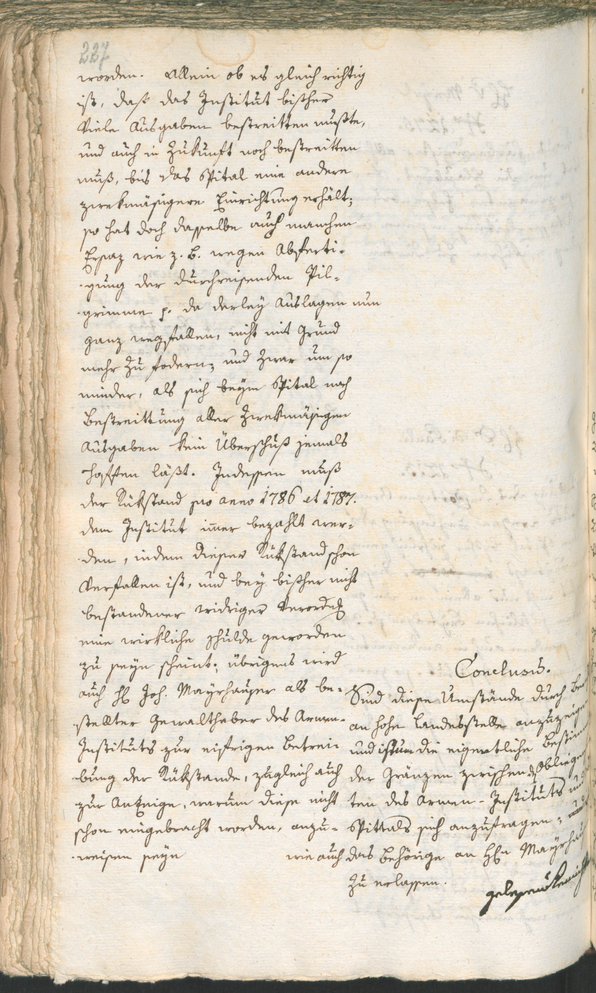 227
worden. Allein ob es gleich richtig
ist, daß das Institut bisher
viele Ausgaben bestreitten mußte,
und auch in Zukunft noch bestreitten
muß, bis das Spital eine andere
zwekmäsigere Einrichtung erhält;
so hat doch dasselbe auch manchen
Ersaz wie z. B. wegen Abferti-
gung der durchreisenden Pil-
grimme p. da derley Auslagen nun
ganz wegfallen, nicht mit Grund
mehr zu fodern, und zwar um so
minder, als sich beym Spital nach
Bestreittung aller zwekmäsigen
Ausgaben kein Überschuß jemals
hoffen läßt. Indessen muß
der Rükstand pro anno 1786 et 1787.
dem Institut immer bezahlt wer-
den, indem dieser Rükstand schon
verfallen ist, und bey bisher nicht
bestandener widriger Verordg
eine wirkliche Schulde geworden
zu seyn scheint; übrigens wird
auch H. Joh. Mayrhauser als be-
stellter Gewalthaber des Armen-
Instituts zur eifrigen Betrei-
bung der Rükstände, zugleich auch
zur Anzeige, warum diese nicht
schon eingebracht worden, anzu-
weisen seyn
Conclusum.
Sind diese Umstände durch
an hohe Landesstelle anzuzeigen
und die eigentliche
der Gränzen zwischen
ten des Armen-Instituts
Spittals sich anzufragen
wie auch das Behörige an H. Mayrhau
zu erlassen.